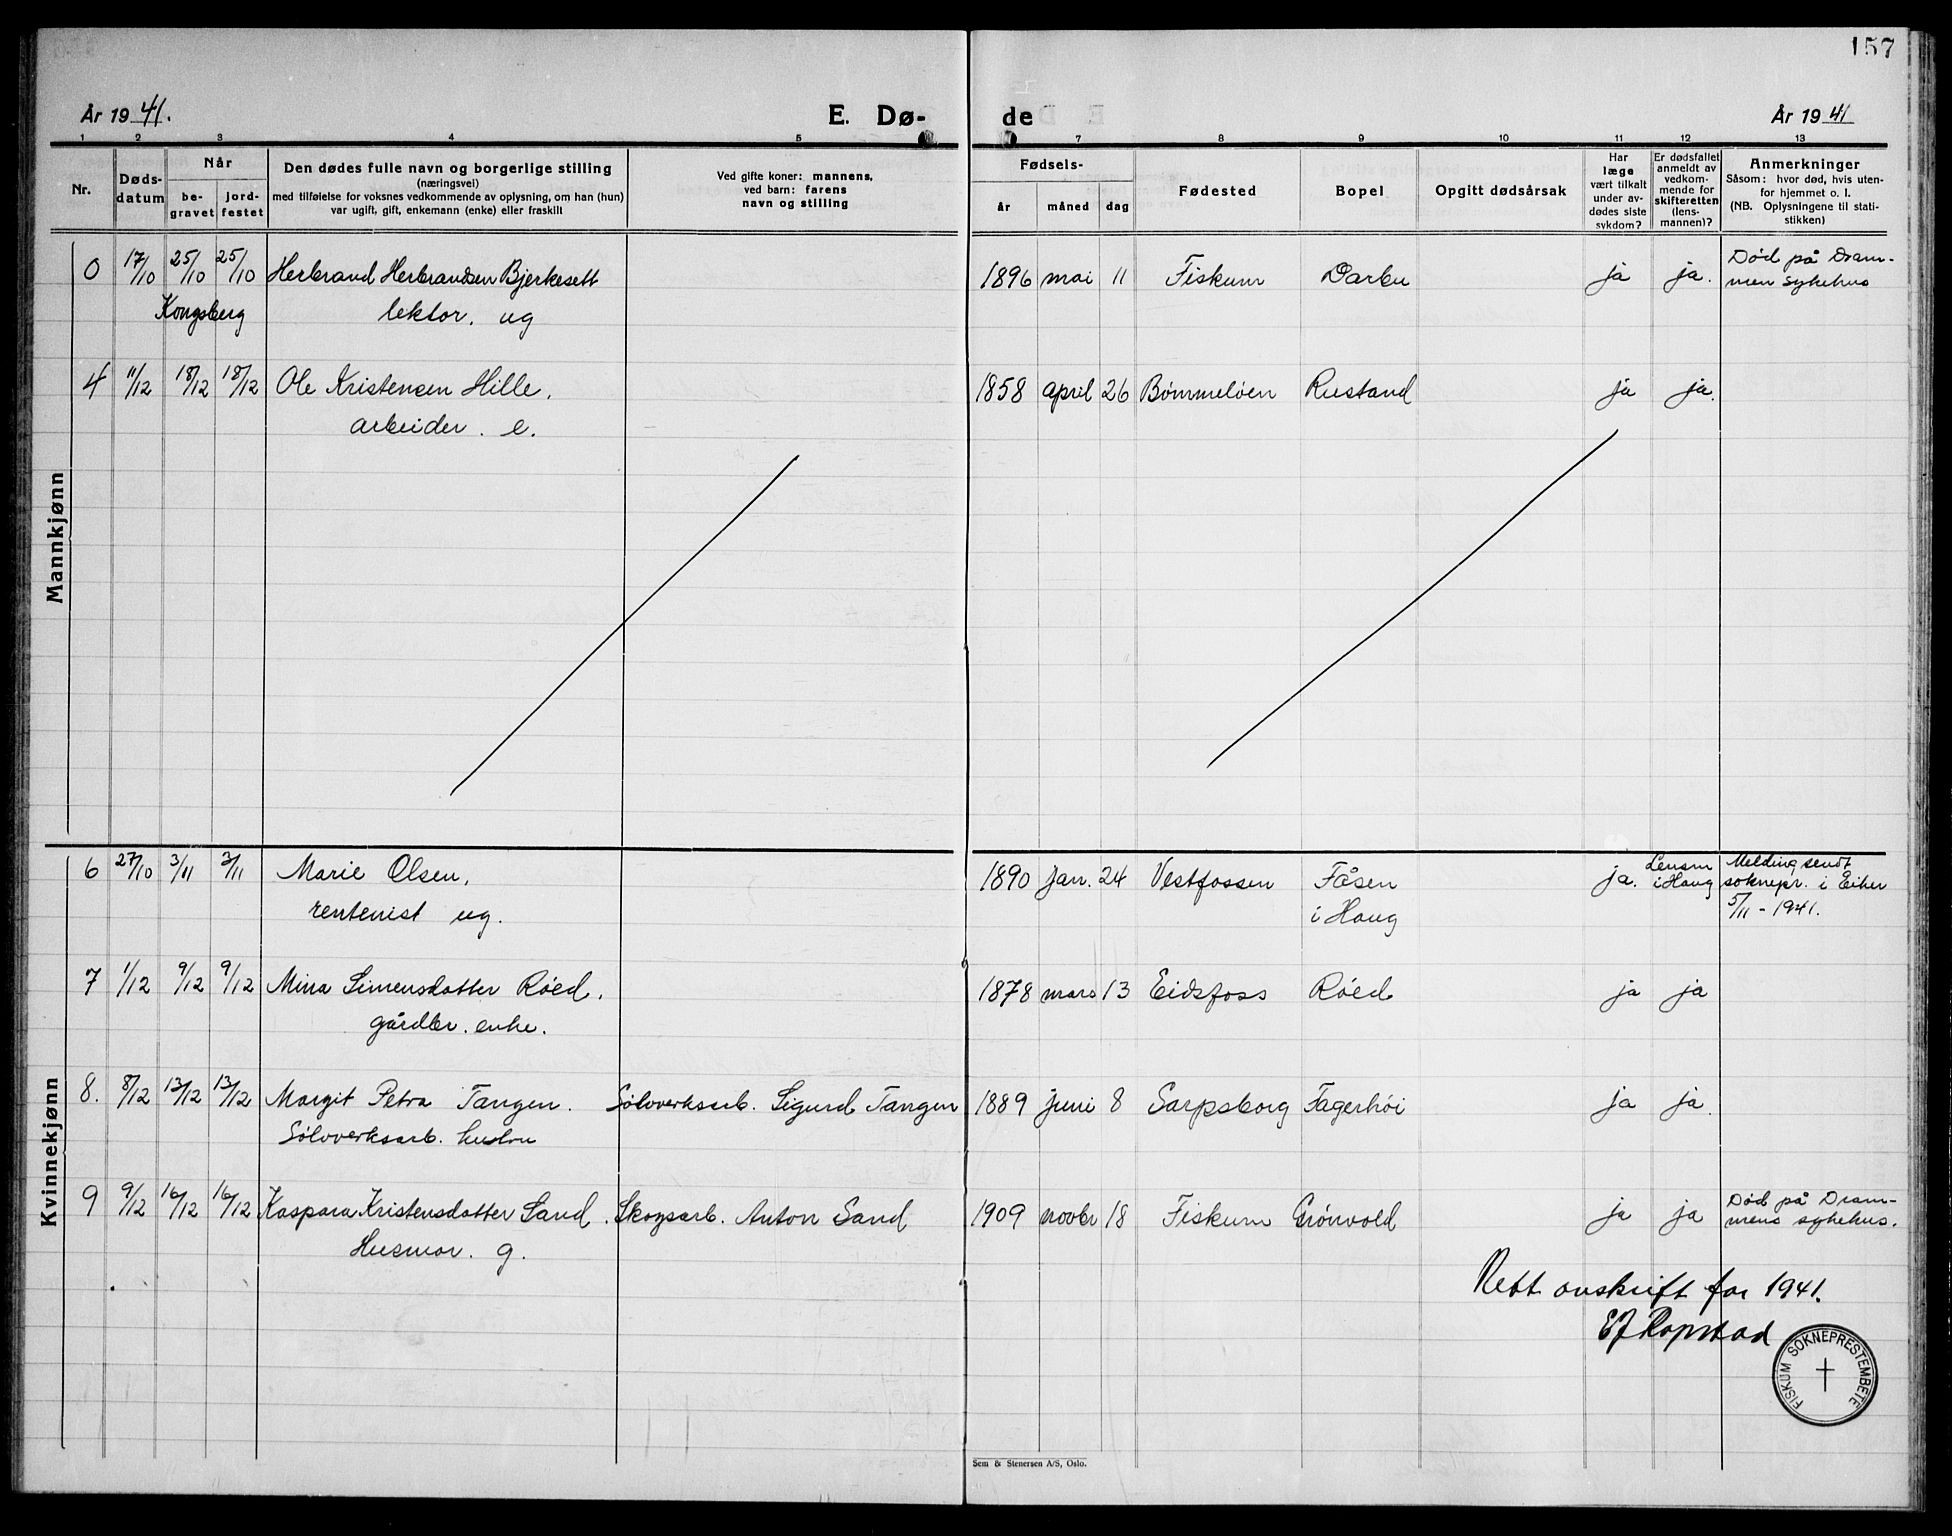 157
År 1941.
E. Dø-
de
År 1941
1 2 3 4 5 7 8 9 10 11 12 13
Nr.
Døds-
datum
Når
be-
gravet
jord-
festet
Den dødes fulle navn og borgerlige stilling
(næringsvei)
med tilføielse for voksnes vedkommende av oplysning, om han (hun)
var ugift, gift, enkemann (enke) eller fraskill
Ved gifte koner: mannens,
ved barn: farens
navn og stilling
Fødsels-
år måned dag
Fødested
Bopel
Opgitt dødsårsak
Har
læge
vært tilkalt
under av-
dødes siste
sykdom?
Er dødsfallet
anmeldt av
vedkom-
mende for
skifteretten
(lens-
mannen)?
Anmerkninger
Såsom: hvor død, hvis uten-
for hjemmet o. l.
(NB. Oplysningene til stati-
stikken)
Mannkjønn
0 17/10 25/10 25/10 Herbrand Herbrandsen Bjerkesett 1896 mai 11 Fiskum Darbu ja ja. Død på Dram-
men sykehus
Kongsberg lektor. ug
4 11/12 18/12 18/12 Ole Kristensen Hille. 1858 april 26 Bømmeløen Rustand ja ja.
arbeider. e.
Kvinnekjønn
6 27/10 3/11 3/11 Marie Olsen, 1890 jan. 24 Vestfossen Fåsen ja. Lensm
i Haug Melding sendt
soknepr. i Eiker
5/11 - 1941.
rentenist ug. i Haug
7 1/12 9/12 9/12 Mina Simensdatter Røed. 1878 mars 13 Eidsfoss Røed ja ja
gårdbr. enke.
8. 8/12 13/12 13/12 Margit Petra Tangen. Sølvverksarb. Sigurd Tangen 1889 juni 8 Sarpsborg Fagerhøi ja ja.
Sølvverksarb. hustru
9 9/12 16/12 16/12 Kaspara Kristensdatter Sand. Skogsarb. Anton Sand 1909 novbr 18 Fiskum Grønvold ja ja Død på Dram-
mens sykehus.
Husmor. g.
Rett avskrift for 1941.
EJ Ropstad
FISKUM SOKNEPRESTEMBETE
Sem & Stenersen A/S, Oslo.